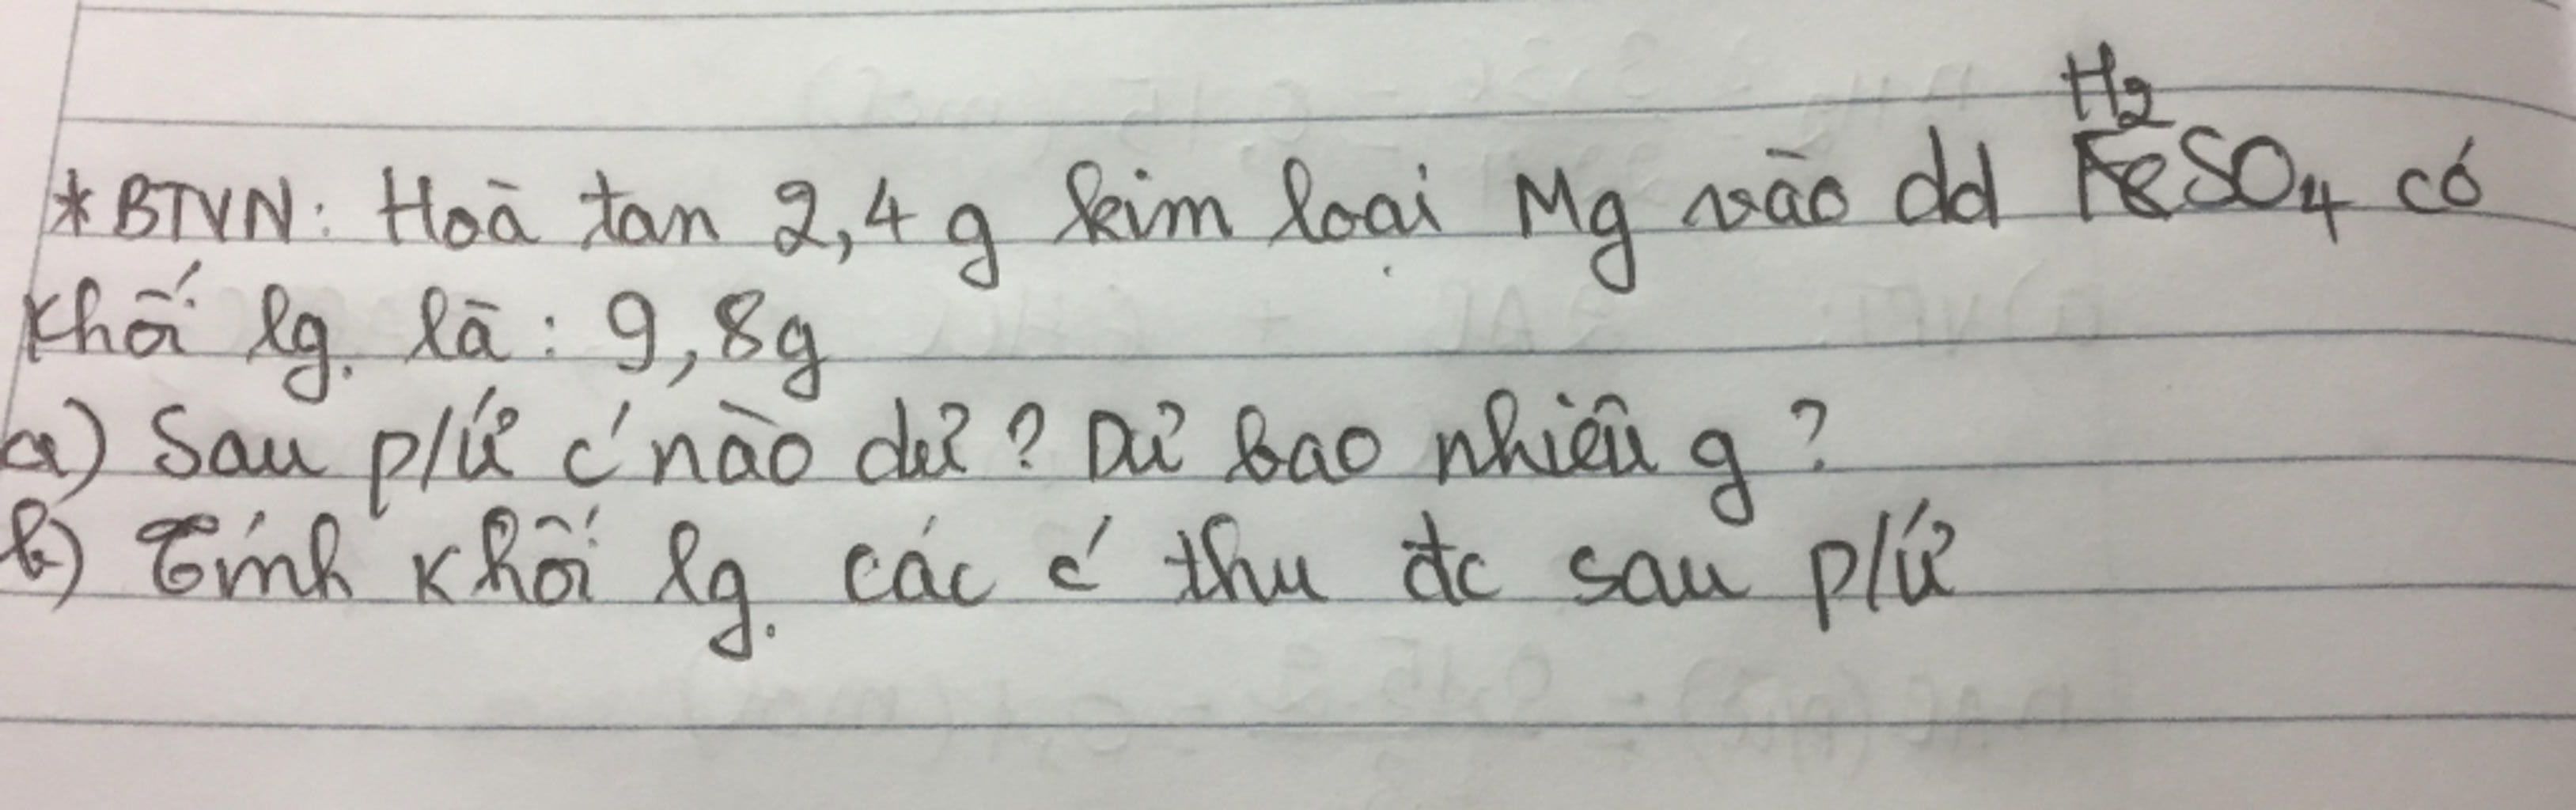 *BTVN: Hoà tan 2,4 g kim loại Mg vào dd H2SO4 có
khối lg. là: 9,8g
a) Sau p/ứ c' nào dư? Dư bao nhiêu g?
b) Tính khối lg. các c' thu đc sau p/ứ